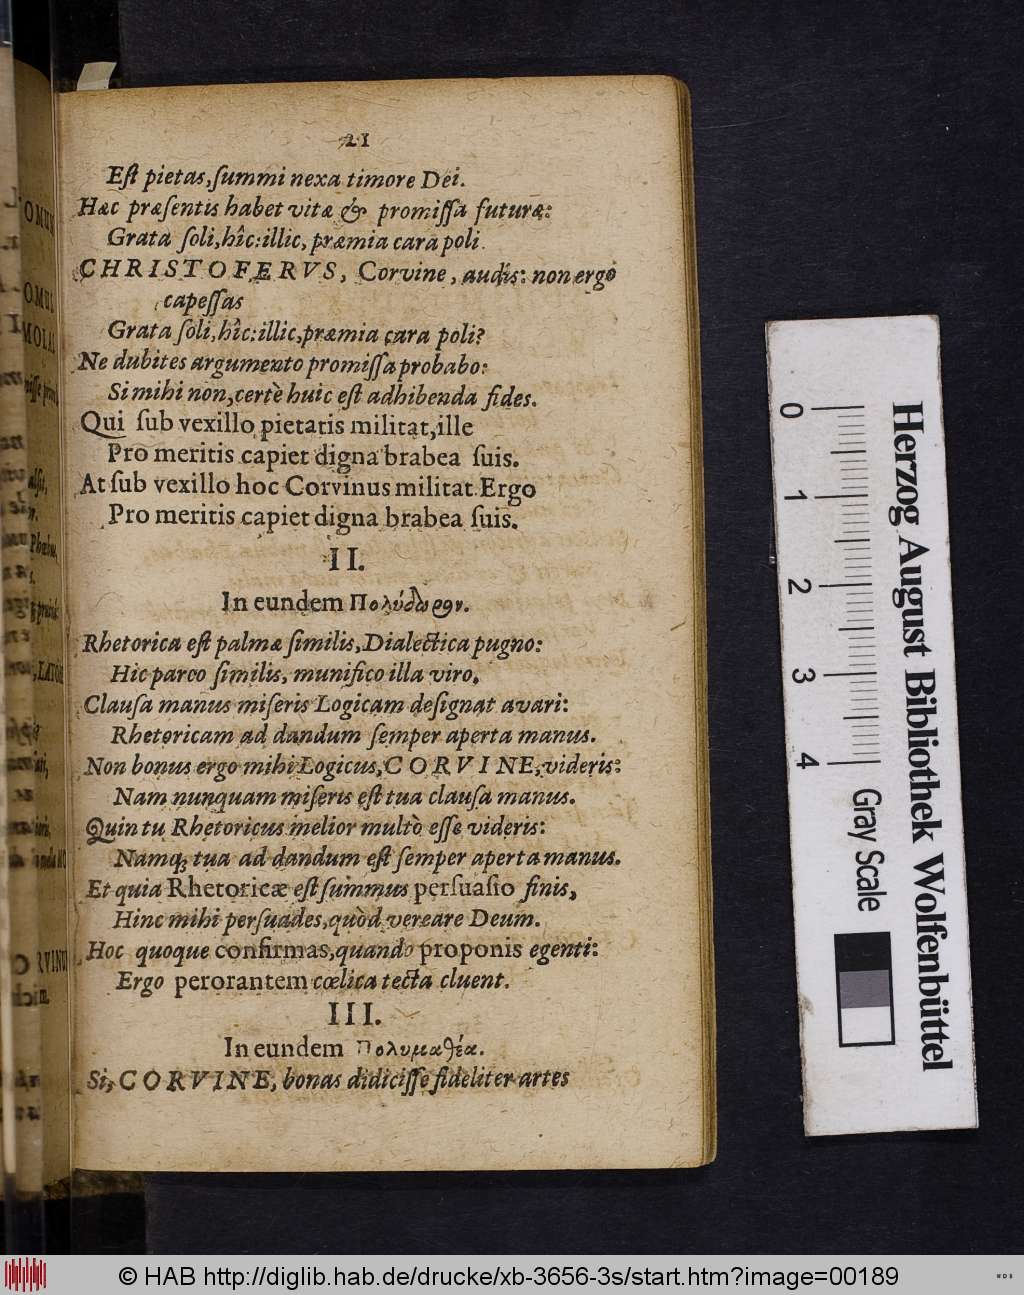 21
Est pietas, summi nexa timore Dei.
Hæc præsentis habet vitæ & promissa futuræ:
Grata soli, hîc: illic, præmia cara poli.
CHRISTOFERVS, Corvine, audis: non ergo
capessas
Grata soli, hîc: illic, præmia cara poli?
Ne dubites argumento promissa probabo:
Si mihi non, certè huic est adhibenda fides.
Qui sub vexillo pietatis militat, ille
Pro meritis capiet digna brabea suis.
At sub vexillo hoc Corvinus militat. Ergo
Pro meritis capiet digna brabea suis.
II.
In eundem Πολύδωρον.
Rhetorica est palmæ similis, Dialectica pugno:
Hic parco similis, munifico illa viro.
Clausa manus miseris Logicam designat avari:
Rhetoricam ad dandum semper aperta manus.
Non bonus ergo mihi Logicus, CORVINE, videris:
Nam nunquam miseris est tua clausa manus.
Quin tu Rhetoricus melior multò esse videris:
Namq; tua ad dandum est semper aperta manus.
Et quia Rhetoricæ est summus persuasio finis,
Hinc mihi persuades, quòd vereare Deum.
Hoc quoque confirmas, quando proponis egenti:
Ergo perorantem cœlica tecta cluent.
III.
In eundem Πολυμαθέα.
Si, CORVINE, bonas didicisse fideliter artes
0
1
2
3
4
Gray Scale
Herzog August Bibliothek Wolfenbüttel
© HAB http://diglib.hab.de/drucke/xb-3656-3s/start.htm?image=00189